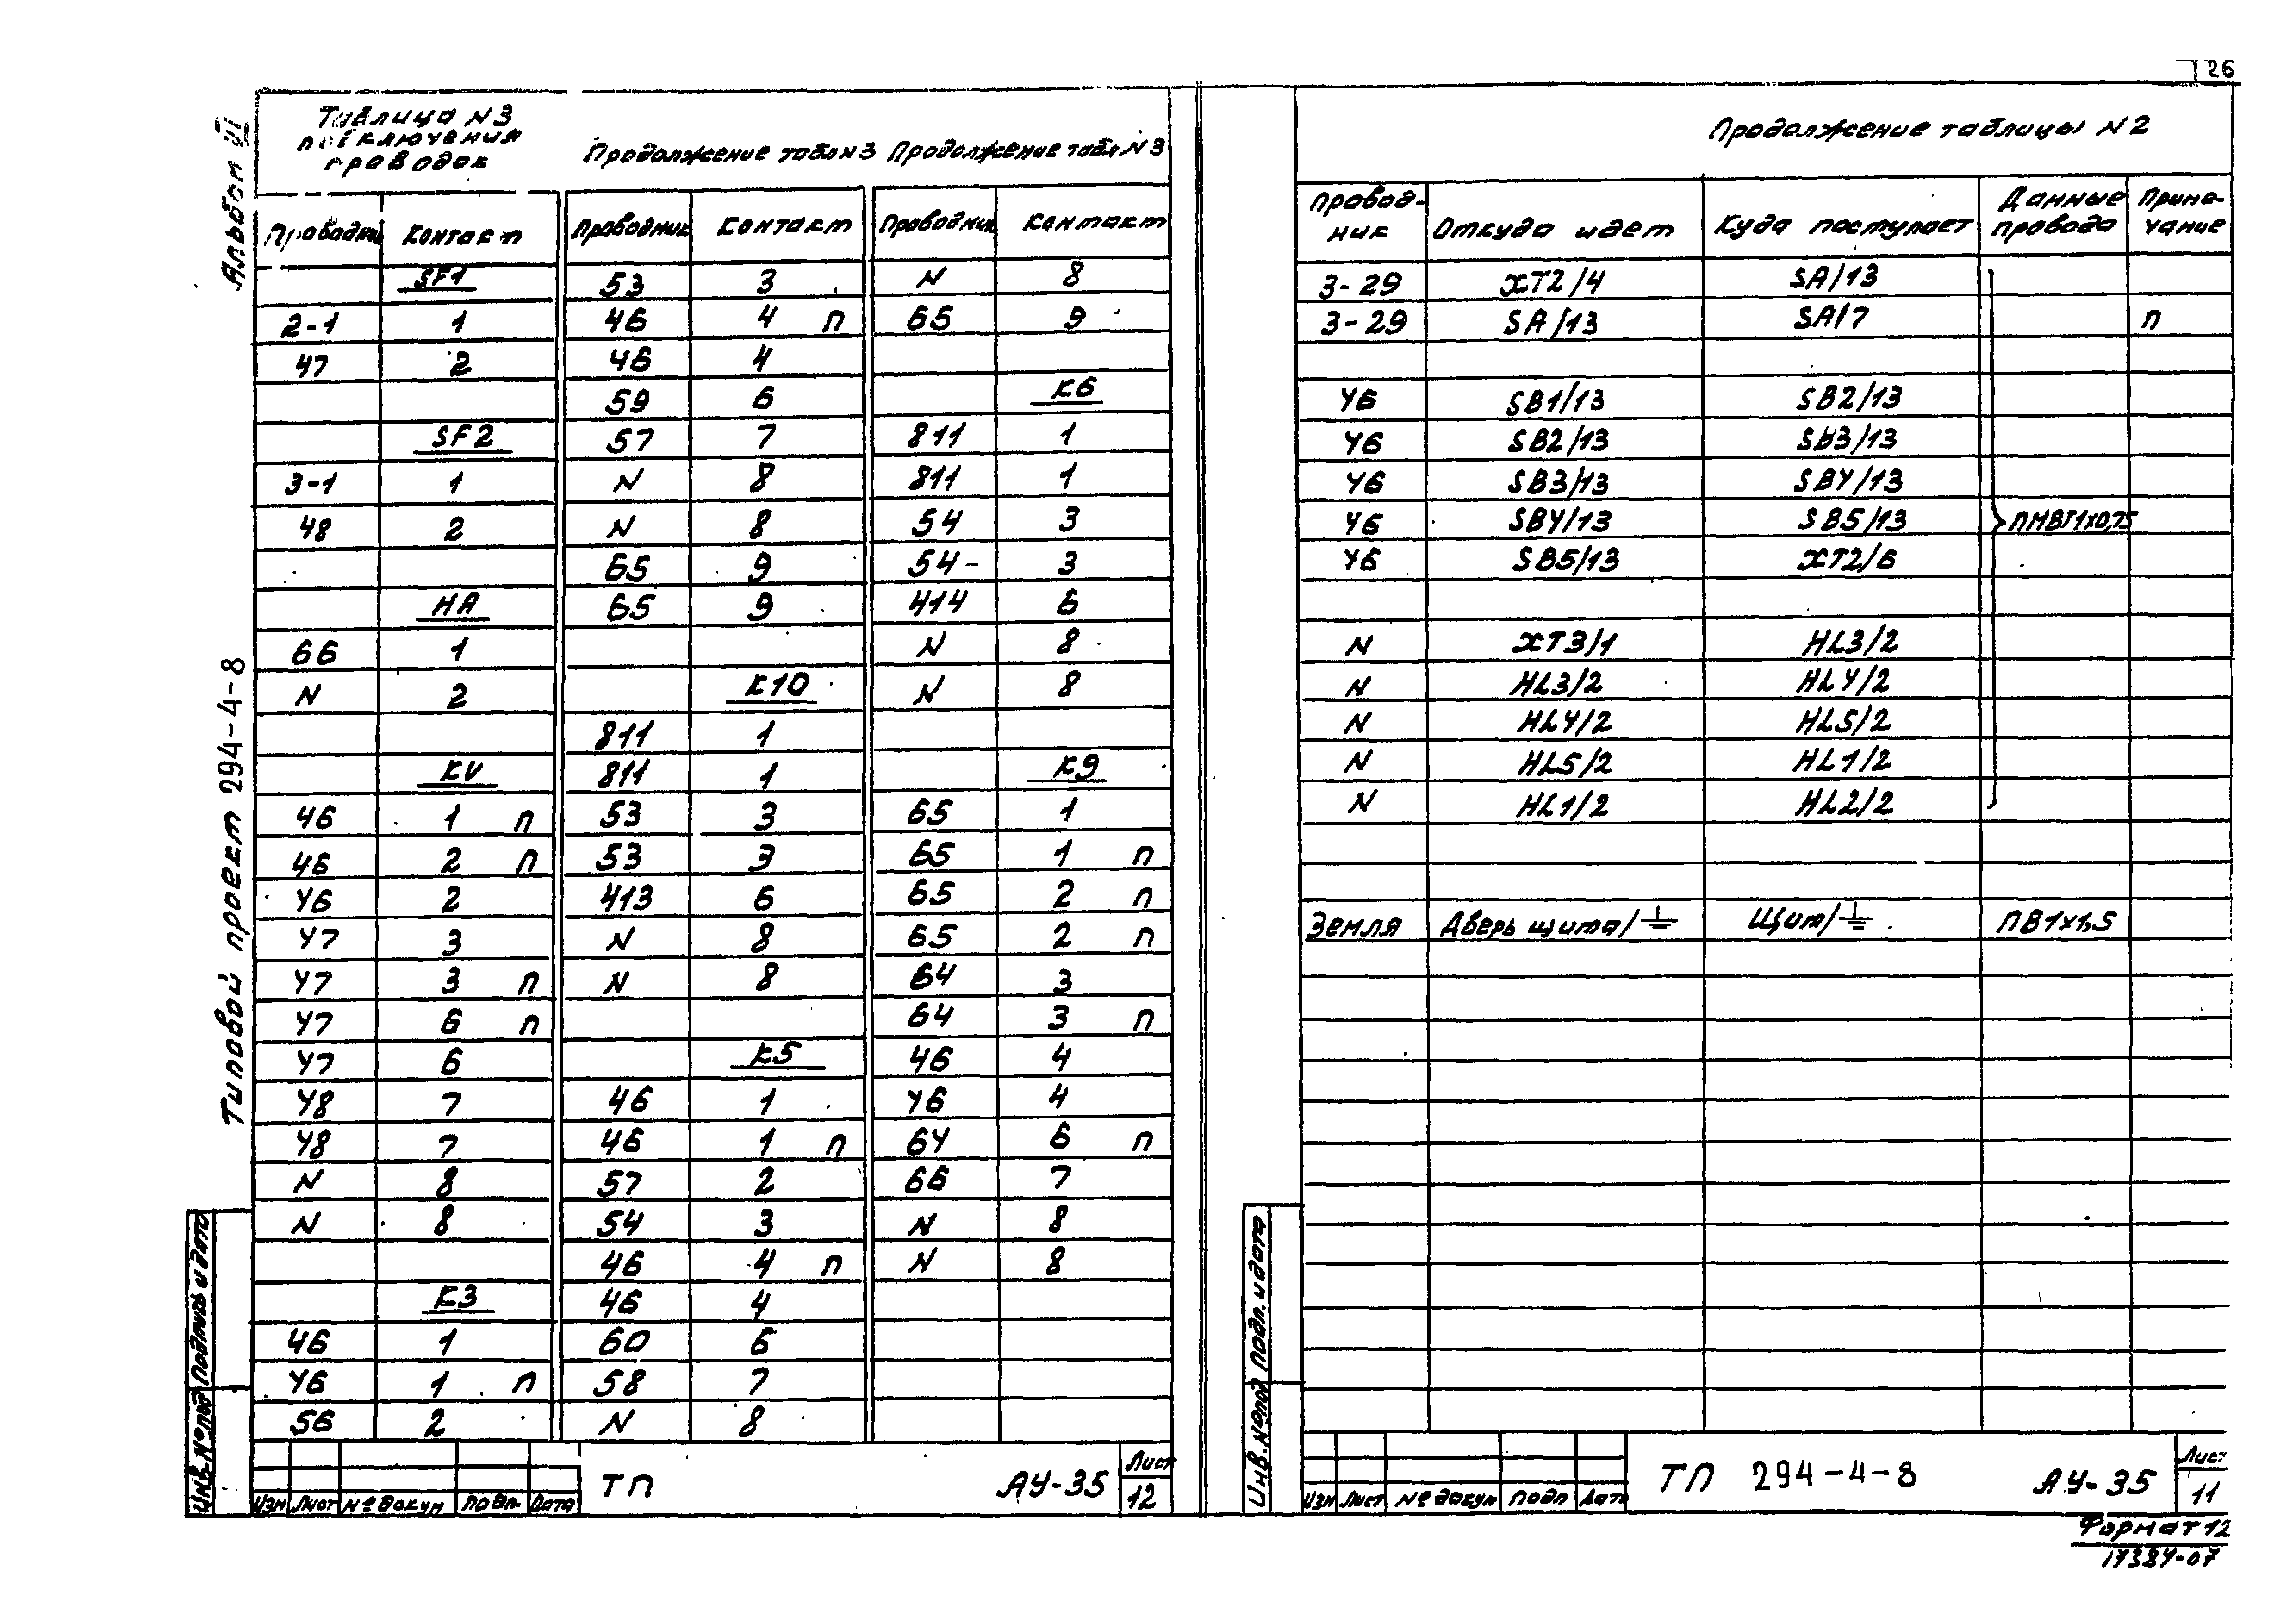 26
Альбом VI
Типовой проект 294-4-8
Таблица N3
подключения
проводок
Продолжение табл N3
Продолжение табл N3
Проводник Контакт Проводник Контакт Проводник Контакт
SF1 53 3 N 8
2-1 1 46 4 п 65 9
47 2 46 4
59 6 К6
SF2 57 7 811 1
3-1 1 N 8 811 1
48 2 N 8 54 3
65 9 54 3
HA 65 9 414 6
66 1 N 8
N 2 К10 N 8
811 1
KV 811 1 К9
46 1 п 53 3 65 1
46 2 п 53 3 65 1 п
46 2 413 6 65 2 п
47 3 N 8 65 2 п
47 3 п N 8 64 3
47 6 п 64 3 п
47 6 К5 46 4
48 7 46 1 46 4
48 7 46 1 п 64 6 п
N 8 57 2 66 7
N 8 54 3 N 8
46 4 п N 8
К3 46 4
46 1 60 6
46 1 п 58 7
56 2 N 8
Инв.№подл Подпись и дата
Изм Лист №докум Подп. Дата
ТП АУ-35 Лист
12
Продолжение таблицы N2
Провод-
ник Откуда идет Куда поступает Данные
провода Приме-
чание
3-29 XT2/4 SA/13
3-29 SA/13 SA/7 п
46 SB1/13 SB2/13
46 SB2/13 SB3/13
46 SB3/13 SB4/13
46 SB4/13 SB5/13 ПМВГ1х0,75
46 SB5/13 XT2/6
N XT3/1 HL3/2
N HL3/2 HL4/2
N HL4/2 HL5/2
N HL5/2 HL1/2
N HL1/2 HL2/2
Земля Дверь щита/⏚ Щит/⏚ ПВ1х1,5
Инв.№подл Подп. и дата
Изм Лист №докум Подп Дата
ТП 294-4-8 АУ-35 Лист
11
Формат 12
17384-07